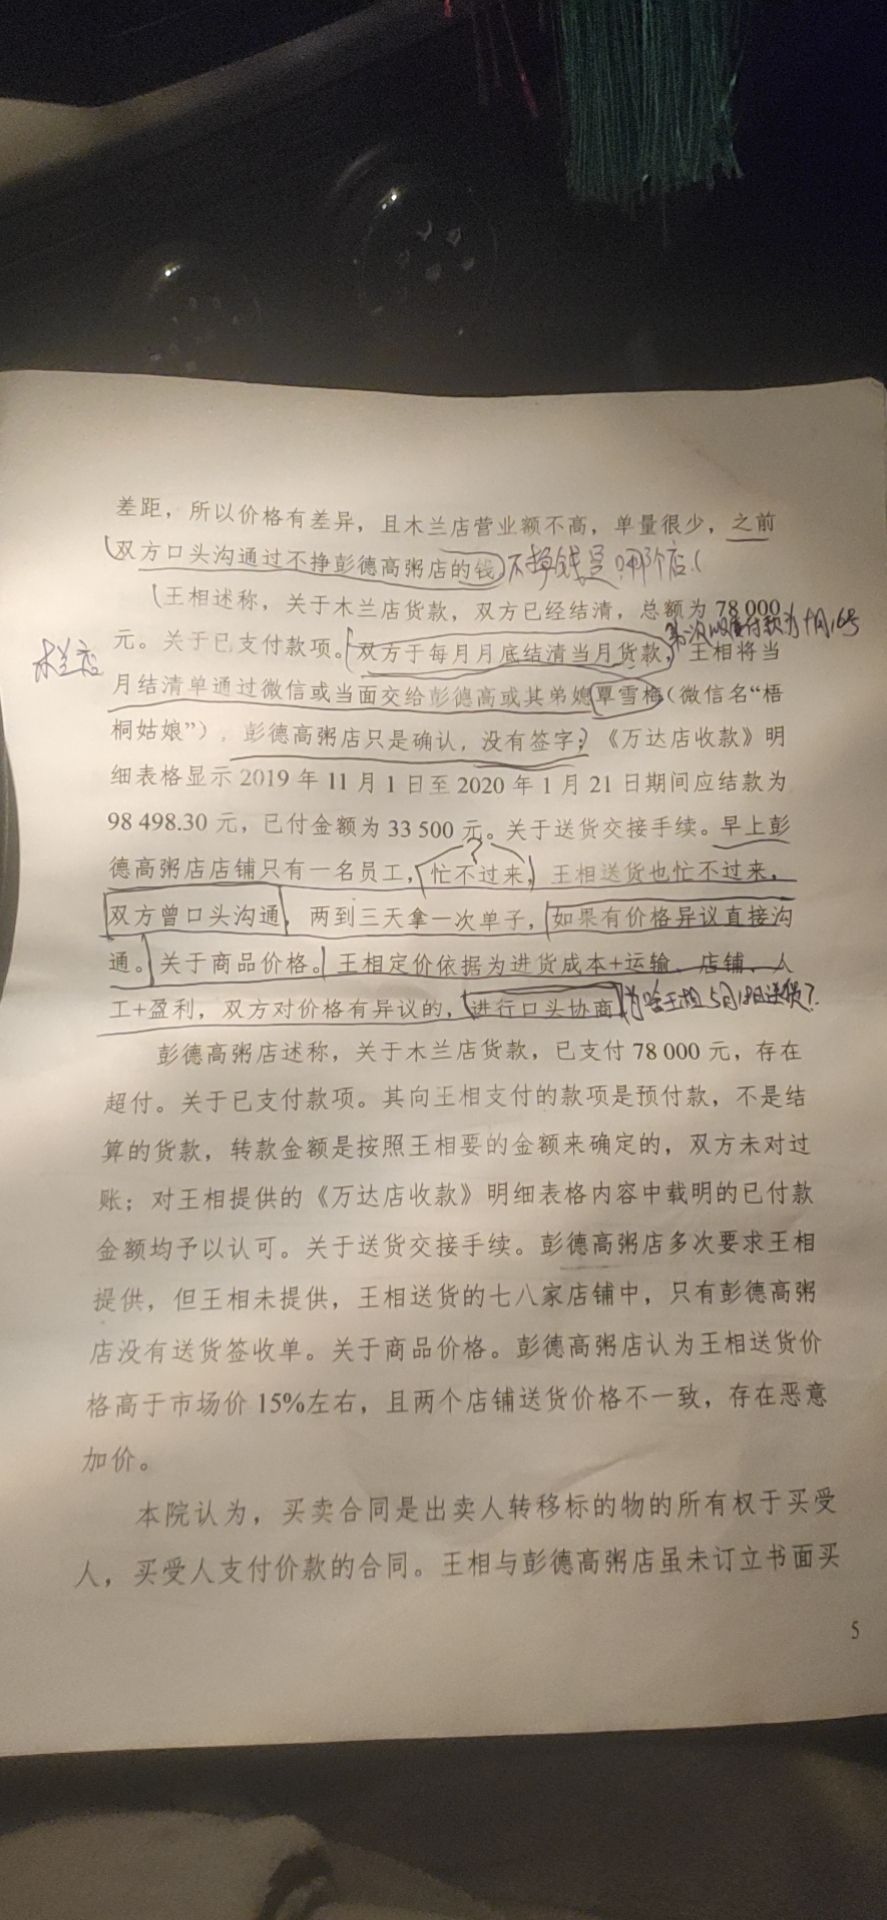 差距，所以价格有差异，且木兰店营业额不高，单量很少，之前
双方口头沟通过不挣彭德高粥店的钱 不挣钱是哪个店
王相述称，关于木兰店货款，双方已经结清，总额为 78 000
付款为
木兰店
元。关于已支付款项。双方于每月月底结清当月货款，王相将当
月结清单通过微信或当面交给彭德高或其弟媳覃雪梅（微信名“梧
桐姑娘”），彭德高粥店只是确认，没有签字；《万达店收款》明
细表格显示 2019 年 11 月 1 日至 2020 年 1 月 21 日期间应结款为
98 498.30 元，已付金额为 33 500 元。关于送货交接手续。早上彭
？
德高粥店店铺只有一名员工，忙不过来，王相送货也忙不过来，
双方曾口头沟通，两到三天拿一次单子，如果有价格异议直接沟
通。关于商品价格。王相定价依据为进货成本+运输、店铺、人
工+盈利，双方对价格有异议的，进行口头协商 为啥王相5月18日送货？
彭德高粥店述称，关于木兰店货款，已支付 78 000 元，存在
超付。关于已支付款项。其向王相支付的款项是预付款，不是结
算的货款，转款金额是按照王相要的金额来确定的，双方未对过
账；对王相提供的《万达店收款》明细表格内容中载明的已付款
金额均予以认可。关于送货交接手续。彭德高粥店多次要求王相
提供，但王相未提供，王相送货的七八家店铺中，只有彭德高粥
店没有送货签收单。关于商品价格。彭德高粥店认为王相送货价
格高于市场价 15%左右，且两个店铺送货价格不一致，存在恶意
加价。
本院认为，买卖合同是出卖人转移标的物的所有权于买受
人，买受人支付价款的合同。王相与彭德高粥店虽未订立书面买
5